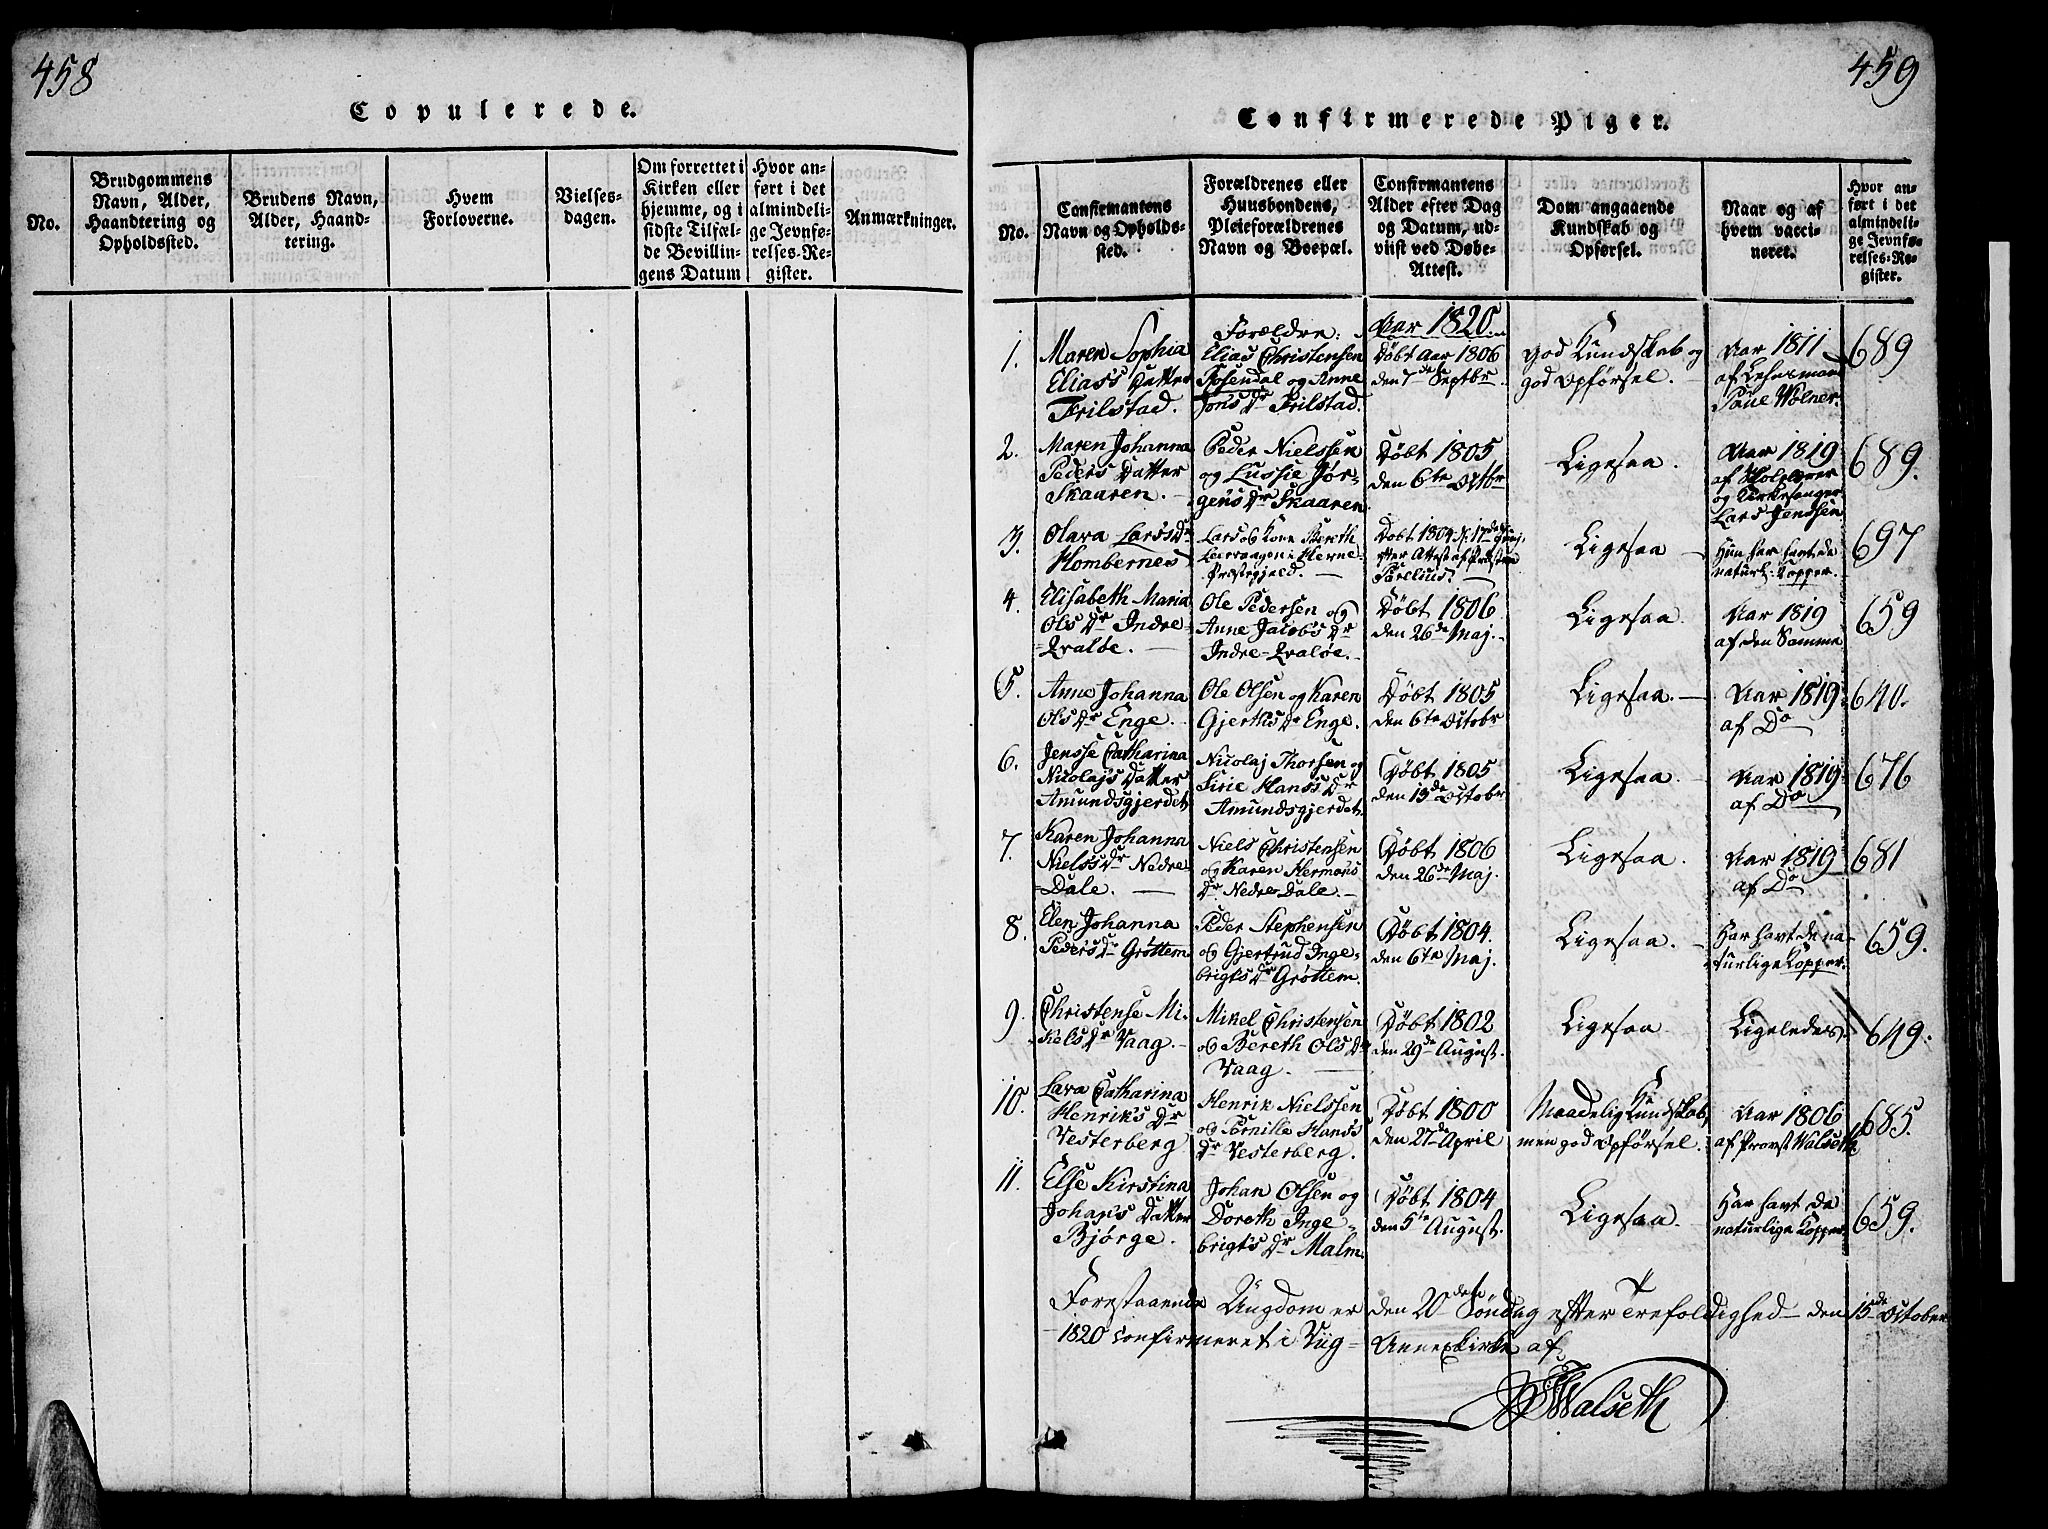 458
Copulerede.
No.
Brudgommens
Navn, Alder,
Haandtering og
Opholdssted.
Brudens Navn,
Alder, Haand-
tering.
Hvem
Forloverne.
Vielses-
dagen.
Om forrettet i
Kirken eller
hjemme, og i
sidste Tilfæl-
de Bevillin-
gens Datum
Hvor an-
ført i det
almindeli-
ge Jevnfø-
relses-Re-
gister.
Anmærkninger.
459
Confirmerede Piger.
No.
Confirmantens
Navn og Opholds-
sted.
Forældrenes eller
Huusbondens,
Pleieforældrenes
Navn og Boepæl.
Confirmantens
Alder efter Dag
og Datum, ud-
viist ved Døbe-
Attest.
Dom angaaende
Kundskab og
Opførsel.
Naar og af
hvem vacci-
neret.
Hvor an-
ført i det
almindeli-
ge Jevnfø-
relses-Re-
gister.
Aar 1820.
1.
Maren Sophia
Elias's Datter
Frilstad.
Forældre:
Elias Christensen
Rosendal og Anne
Jons Dr Frilstad.
Døbt Aar 1806
den 7de Septbr.
god Kundskab og
god Opførsel.
Aar 1811
af Lehnsmand
Poul Wolner.
689
2.
Maren Johanna
Peders Datter
Skaaren.
Peder Nielssen
og Lussie Jør-
gens Dr Skaaren
Døbt 1805
den 6te Octbr
Ligesaa.
Aar 1819
af Skolelærer
og Kirkesanger
Lars Jenssen
689.
3.
Olava Lars's Dr
Hombernes
Lars og Kone Bereth
Leervaagen i Hevne
Præstegjeld.
Døbt 1804 d: 17de Junj,
efter Attest af Præsten
Parelius.
Ligesaa
Hun har havt de
naturl: Kopper.
697
4.
Elisabeth Maria
Ols Dr Indre-
Qvaløe.
Ole Pedersen og
Anne Jacobs Dr
Indre-Qvaløe.
Døbt 1806
den 26de Maj.
Ligesaa.
Aar 1819
af den Samme
659
5.
Anne Johanna
Ols Dr Enge.
Ole Olsen og Karen
Gjerths Dr Enge.
Døbt 1805
den 6te Octobr
Ligesaa.
Aar 1819
af Do
640.
6.
Jensse Catharina
Nicolajs Datter
Amundsgjerdet
Nicolaj Thorsen og
Sirie Hans's Dr
Amundsgjerdet.
Døbt 1805
den 13de October
Ligesaa.
Aar 1819
af Do
676
7.
Karen Johanna
Niels's Dr Nedre
Dale.
Niels Christensen
og Karen Hermans
Dr Nedre Dale.
Døbt 1806
den 26de Maj.
Ligesaa.
Aar 1819
af Do
681
8.
Elen Johanna
Peders Dr Grøttem
Peder Stephensen
og Gjertrud Inge-
brigts Dr Grøttem.
Døbt 1804.
den 6te Maj.
Ligesaa.
Har havt de na-
turlige Kopper.
659.
9.
Christense Mi-
kels Dr Vaag.
Mikel Christensen
og Bereth Ols Dr
Vaag.
Døbt 1802
den 29de August.
Ligesaa
Ligeledes
649.
10.
Lava Catharina
Henriks Dr
Vesterberg
Henrik Nielssen
og Pernille Hans's
Dr Vesterberg.
Døbt 1800
den 27de April
Maadelig Kundskab,
men god Opførsel.
Aar 1806
af Provst Walseth
685.
11.
Else Kirstina
Johans Datter
Bjørge.
Johan Olsen og
Doroth Inge-
brigts Dr Malm.
Døbt 1804
den 5te August.
Ligesaa.
Har havt de
naturlige Kopper
659.
Forestaaende Ungdom er den 20de Søndag efter Trefoldighed den 15de October
1820 confirmeret i Viig - Annexkirke af
Walseth